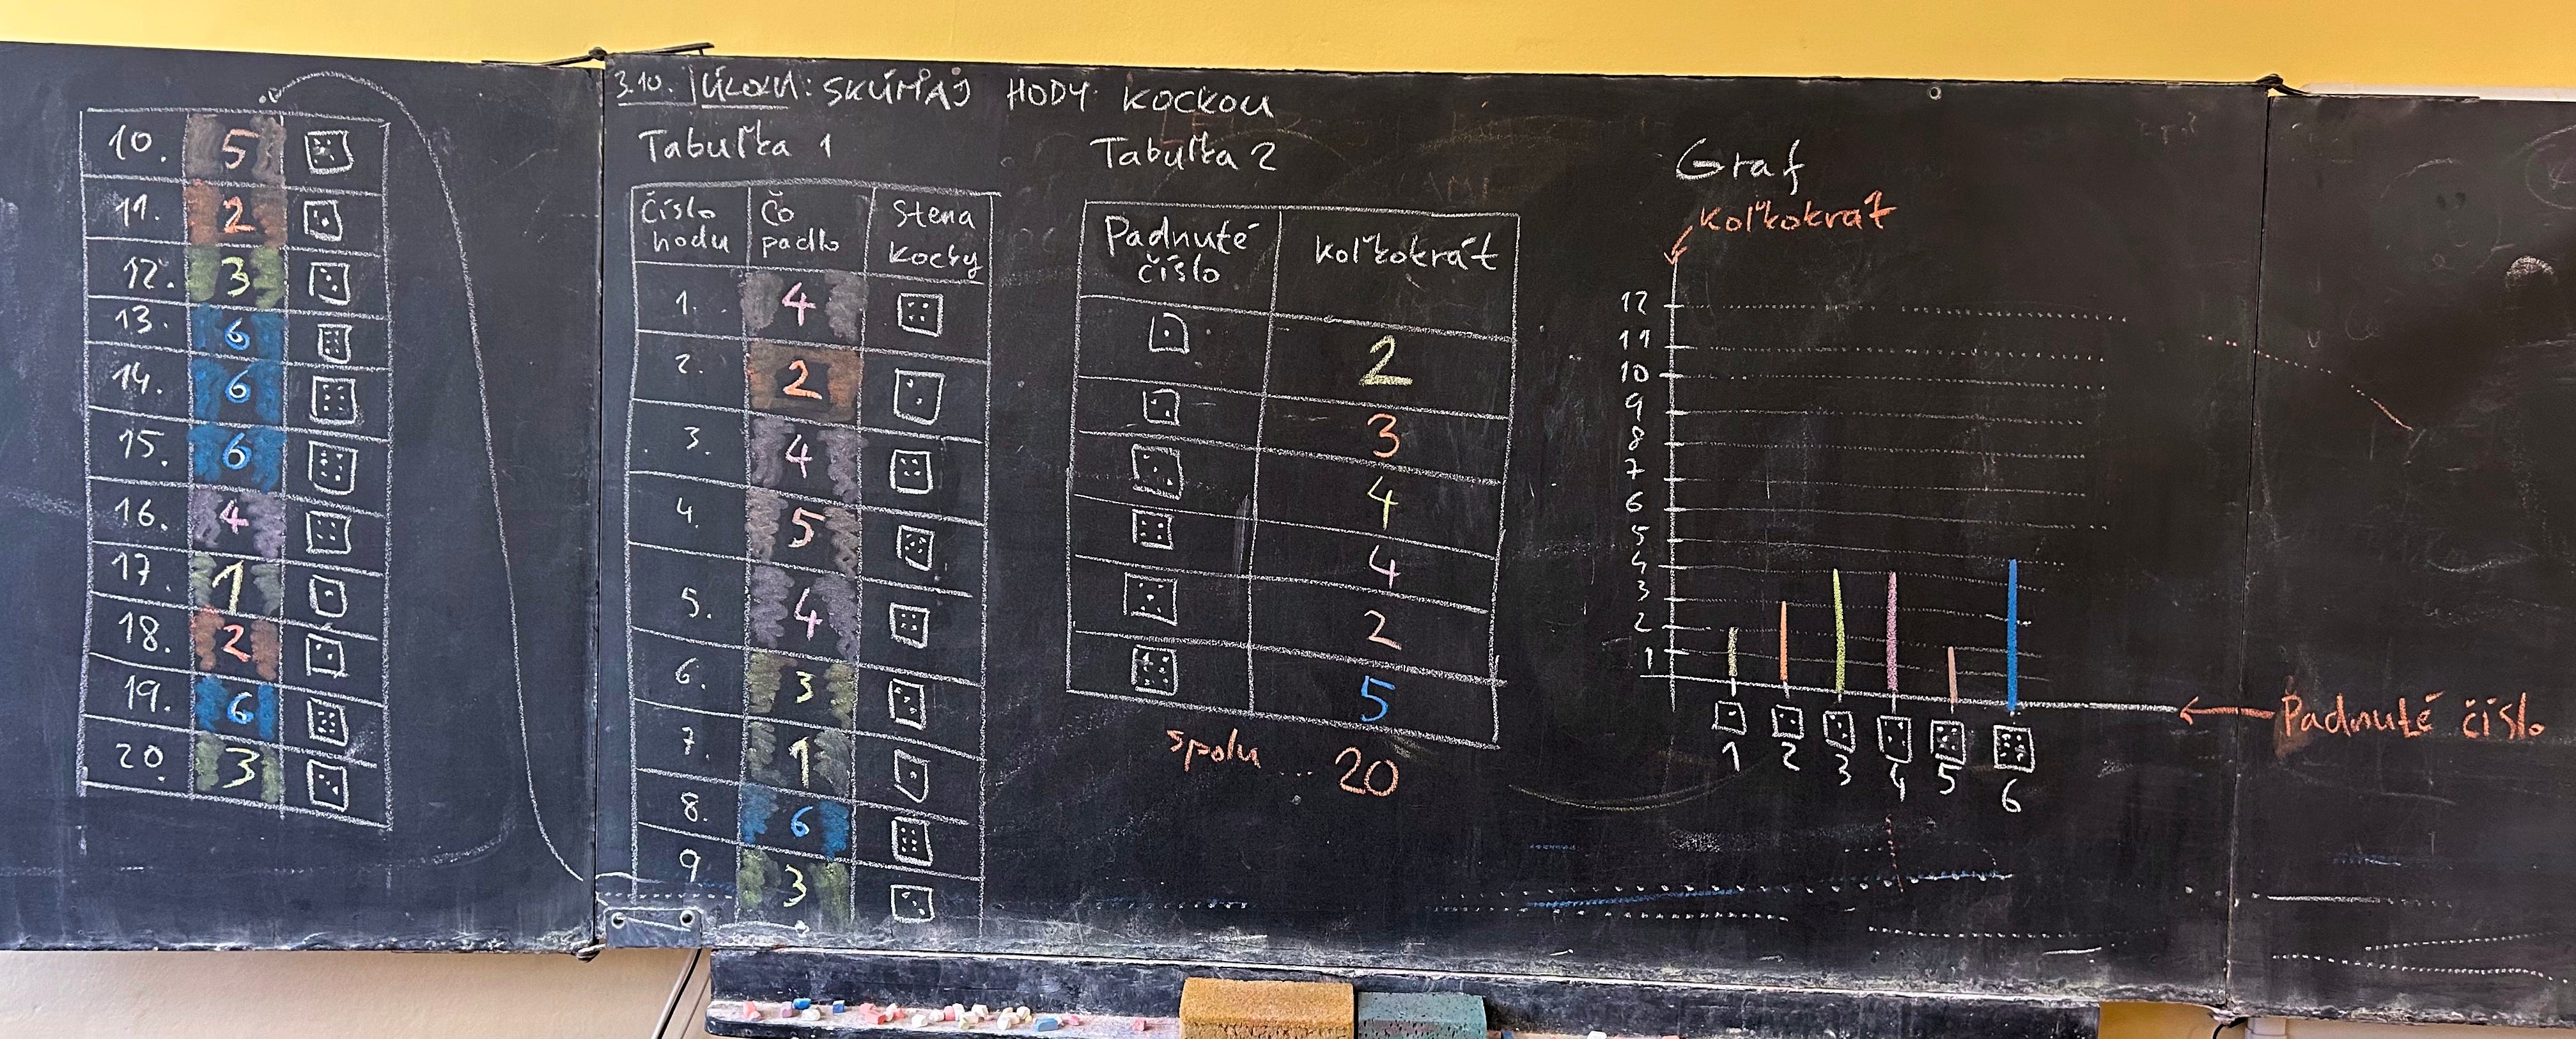 3.10. ÚLOHA: SKÚMAJ HODY KOCKOU
Tabuľka 1
Číslo hodu Čo padlo Stena kocky
1. 4
2. 2
3. 4
4. 5
5. 4
6. 3
7. 1
8. 6
9 3
10. 5
11. 2
12. 3
13. 6
14. 6
15. 6
16. 4
17. 1
18. 2
19. 6
20. 3
Tabuľka 2
Padnuté číslo koľkokrát
2
3
4
4
2
5
spolu ... 20
Graf
koľkokrát
12
11
10
9
8
7
6
5
4
3
2
1
1 2 3 4 5 6
Padnuté číslo